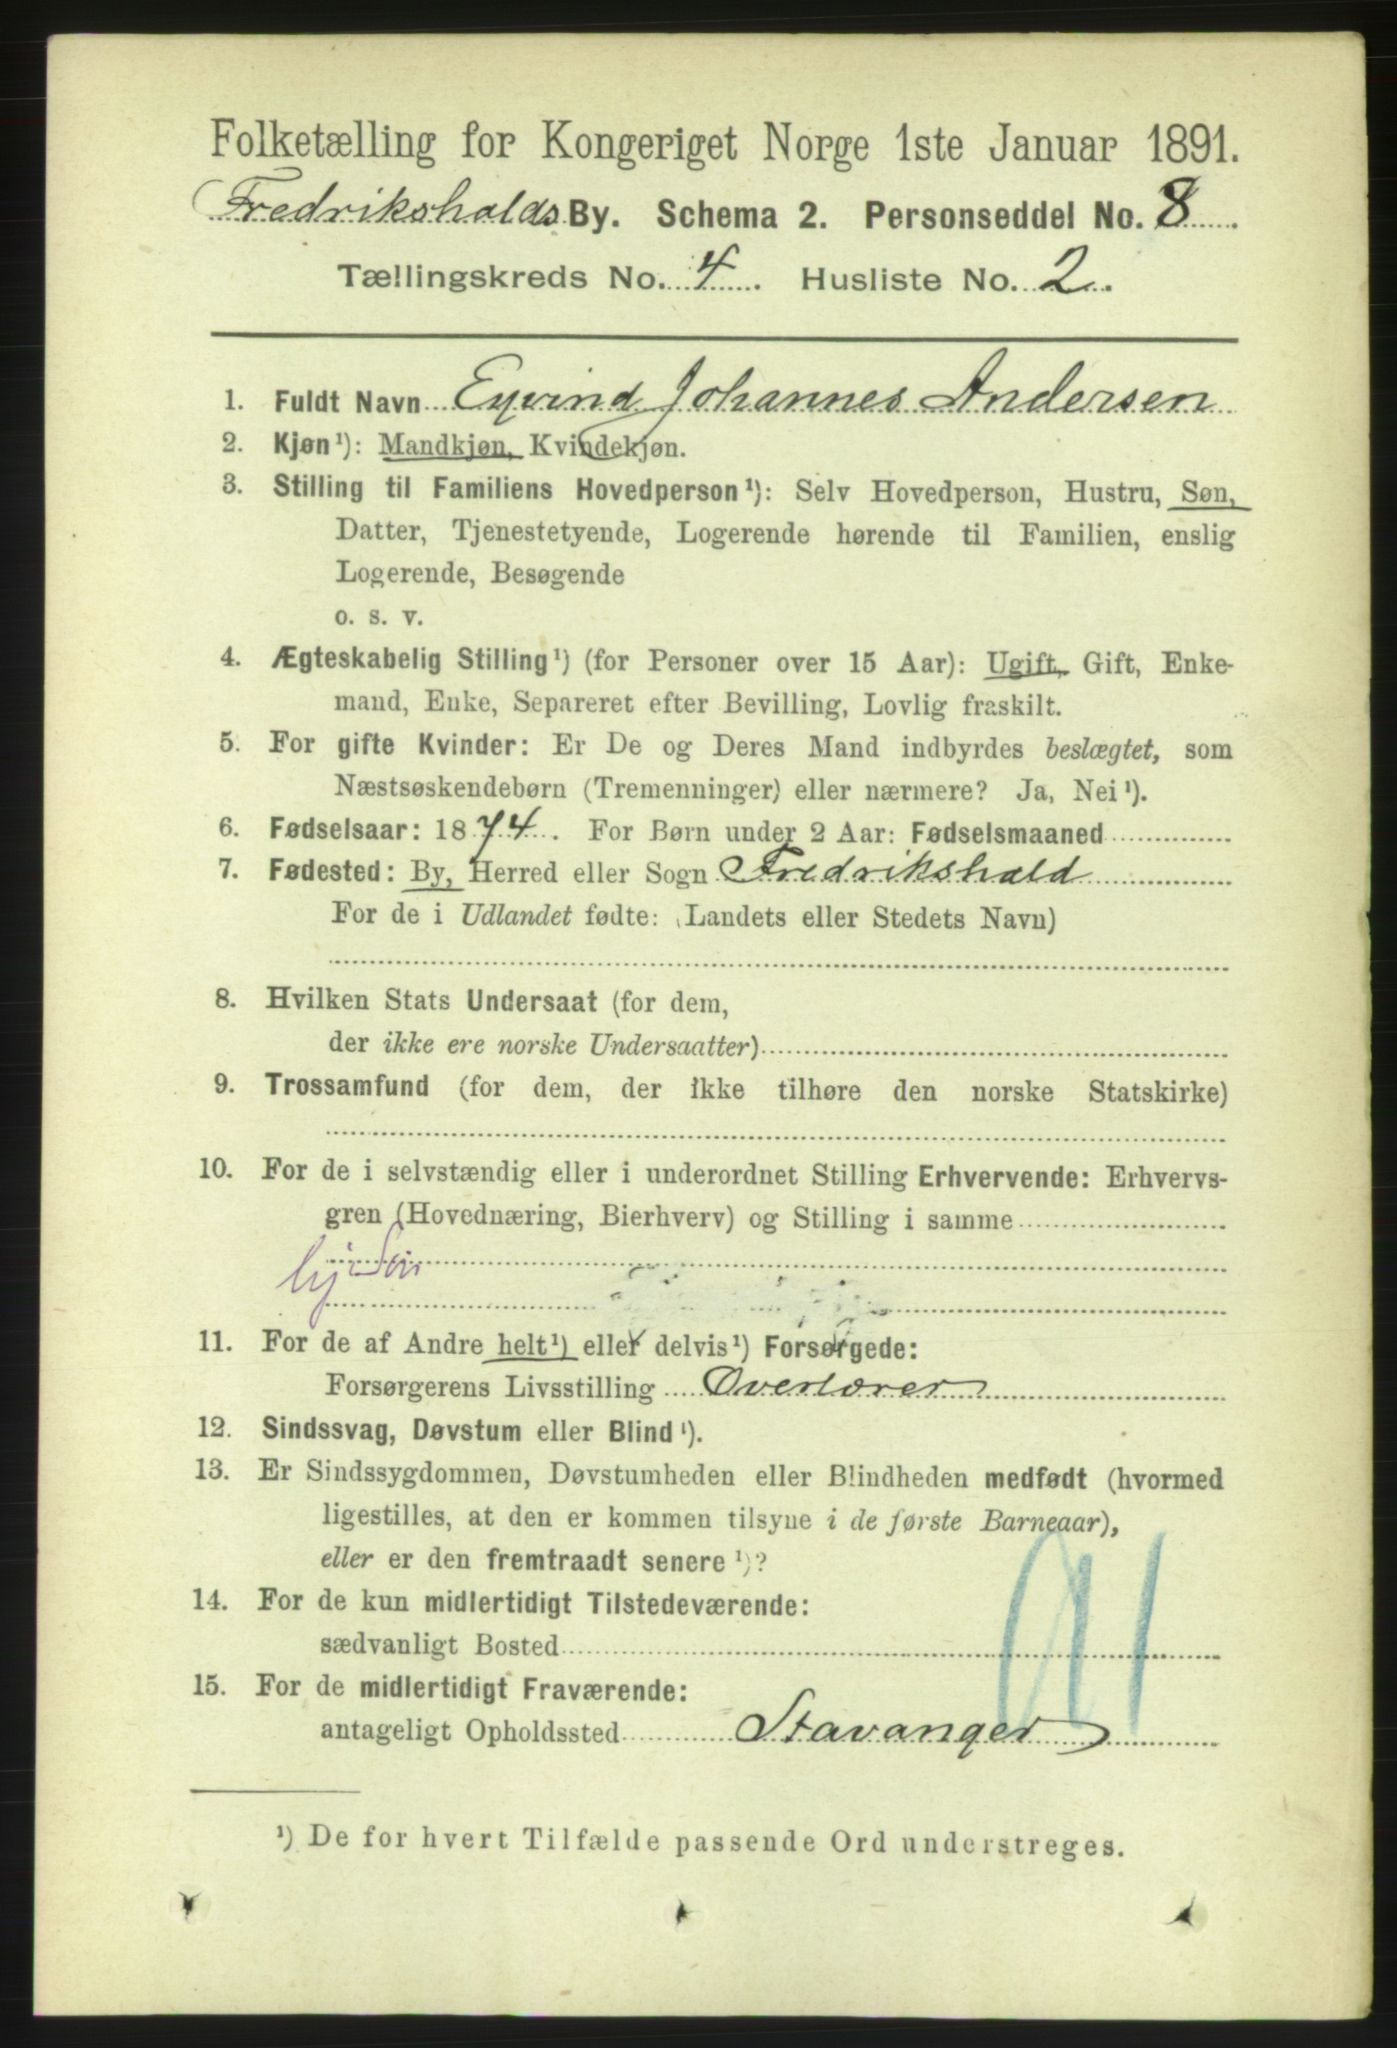 Folketælling for Kongeriget Norge 1ste Januar 1891.
Fredrikshalds By. Schema 2. Personseddel No. 8
Tællingskreds No. 4. Husliste No. 2.
1. Fuldt Navn Eyvind Johannes Andersen
2. Kjøn¹): Mandkjøn, Kvindekjøn.
3. Stilling til Familiens Hovedperson¹): Selv Hovedperson, Hustru, Søn,
Datter, Tjenestetyende, Logerende hørende til Familien, enslig
Logerende, Besøgende
o. s. v.
4. Ægteskabelig Stilling¹) (for Personer over 15 Aar): Ugift, Gift, Enke-
mand, Enke, Separeret efter Bevilling, Lovlig fraskilt.
5. For gifte Kvinder: Er De og Deres Mand indbyrdes beslægtet, som
Næstsøskendebørn (Tremenninger) eller nærmere? Ja, Nei¹).
6. Fødselsaar: 1874. For Børn under 2 Aar: Fødselsmaaned
7. Fødested: By, Herred eller Sogn Fredrikshald
For de i Udlandet fødte: (Landets eller Stedets Navn)
8. Hvilken Stats Undersaat (for dem,
der ikke ere norske Undersaatter)
9. Trossamfund (for dem, der ikke tilhøre den norske Statskirke)
10. For de i selvstændig eller i underordnet Stilling Erhvervende: Erhvervs-
gren (Hovednæring, Bierhverv) og Stilling i samme
11. For de af Andre helt¹) eller delvis¹) Forsørgede:
Forsørgerens Livsstilling Overlærer
12. Sindssvag, Døvstum eller Blind¹).
13. Er Sindssygdommen, Døvstumheden eller Blindheden medfødt (hvormed
ligestilles, at den er kommen tilsyne i de første Barneaar),
eller er den fremtraadt senere¹)?
14. For de kun midlertidigt Tilstedeværende:
sædvanligt Bosted
15. For de midlertidigt Fraværende:
antageligt Opholdssted Stavanger
¹) De for hvert Tilfælde passende Ord understreges.